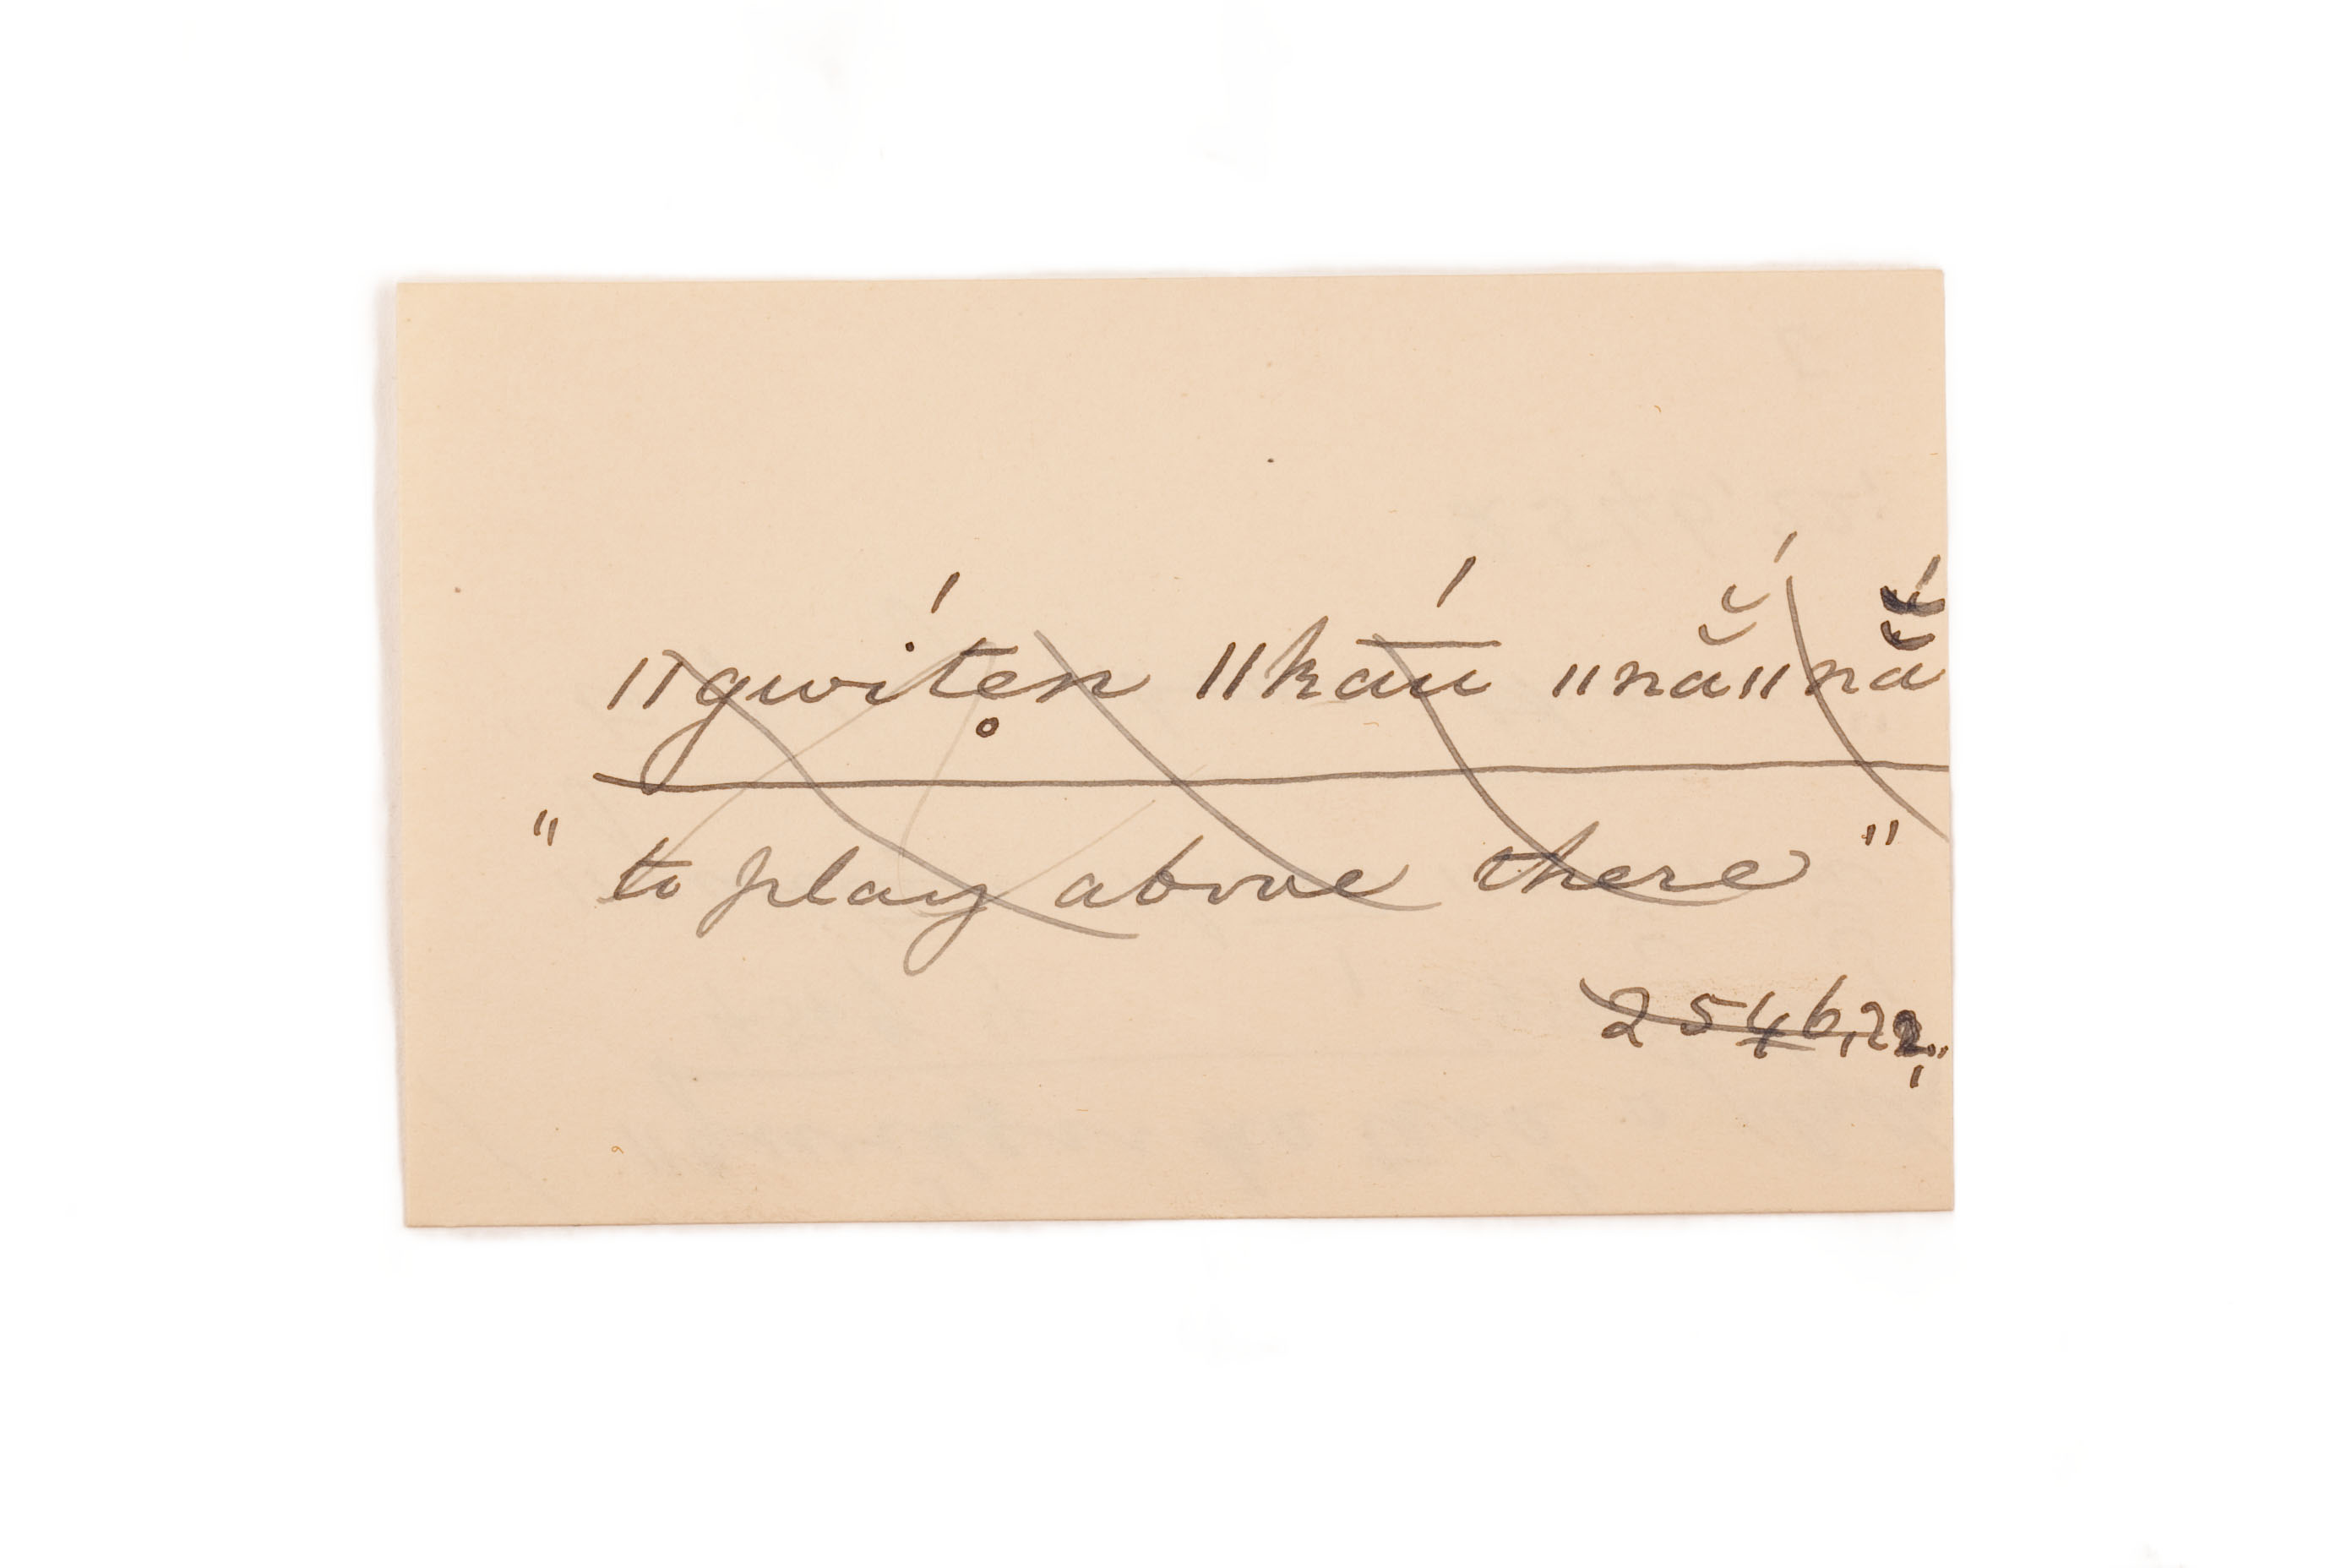 "gwíte̥n "kā́ū "nă̆́"nă̆́
" to play above there "
2546,22.